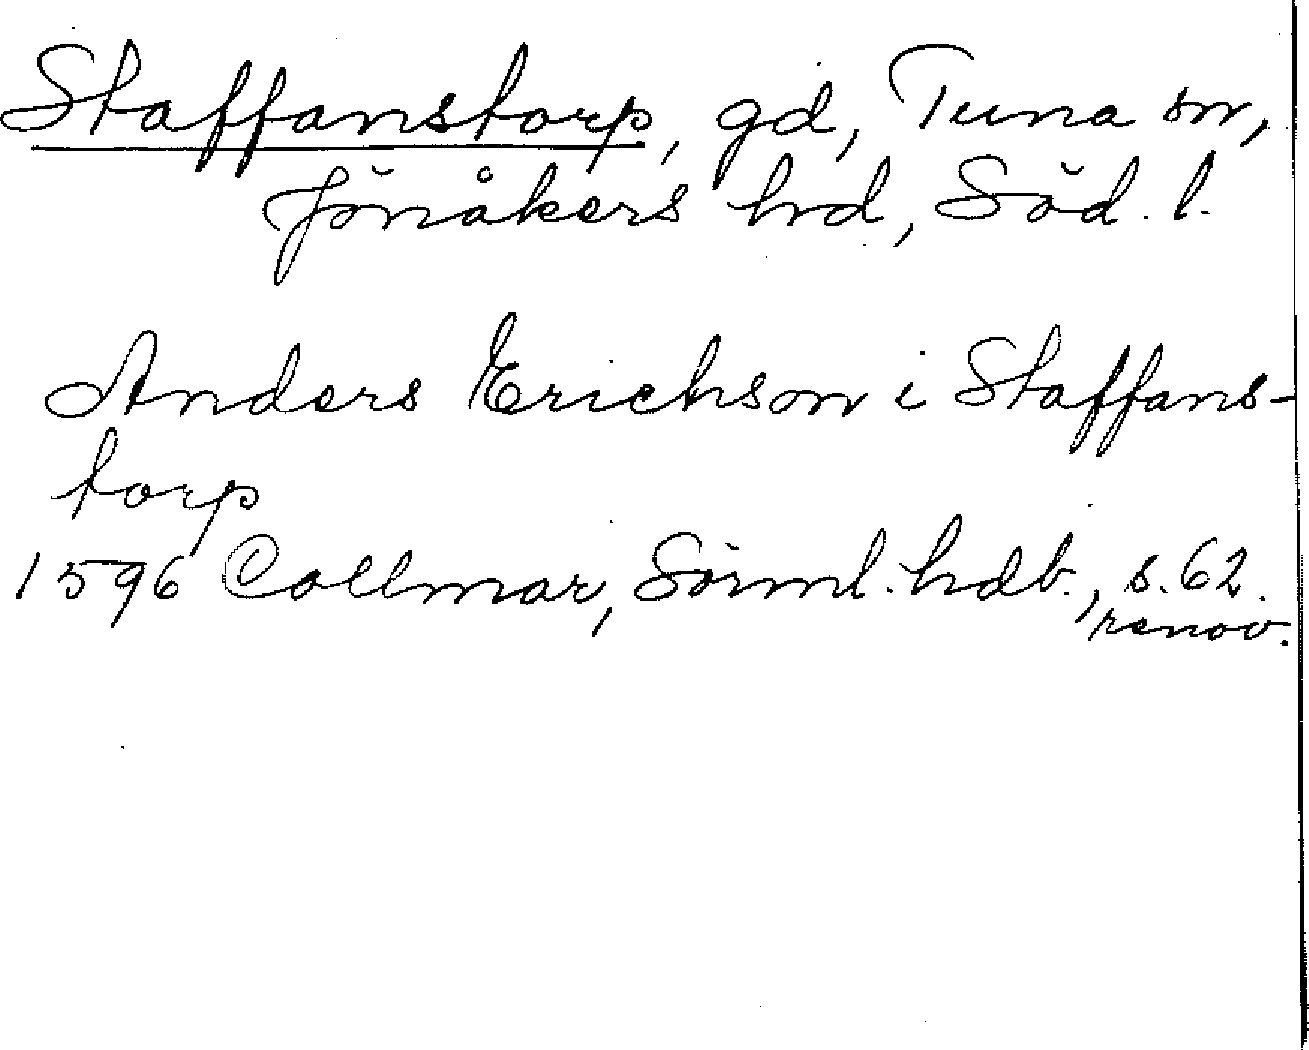 Staffanstorp, gd, Tuna sn,
Jönåkers hrd, Söd. l.
Anders Erichson i Staffans-
torp
1596 Collmar, Sörml. hdb., s. 62.
renov.